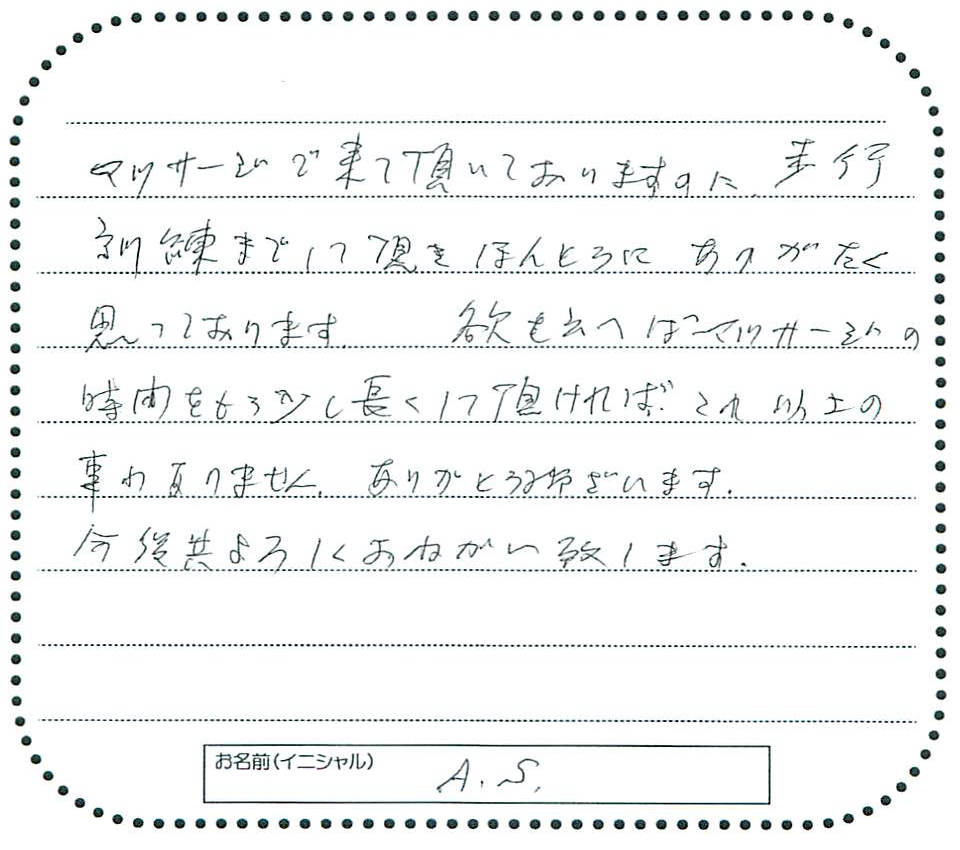 マッサージで来て頂いておりますのに、歩行
訓練までして頂きほんとうにありがたく
思っております。 欲を云へばマッサージの
時間をもう少し長くして頂ければこれ以上の
事わありません。ありがとう御ざいます。
今後共よろしくおねがい致します。
お名前(イニシャル) A.S.